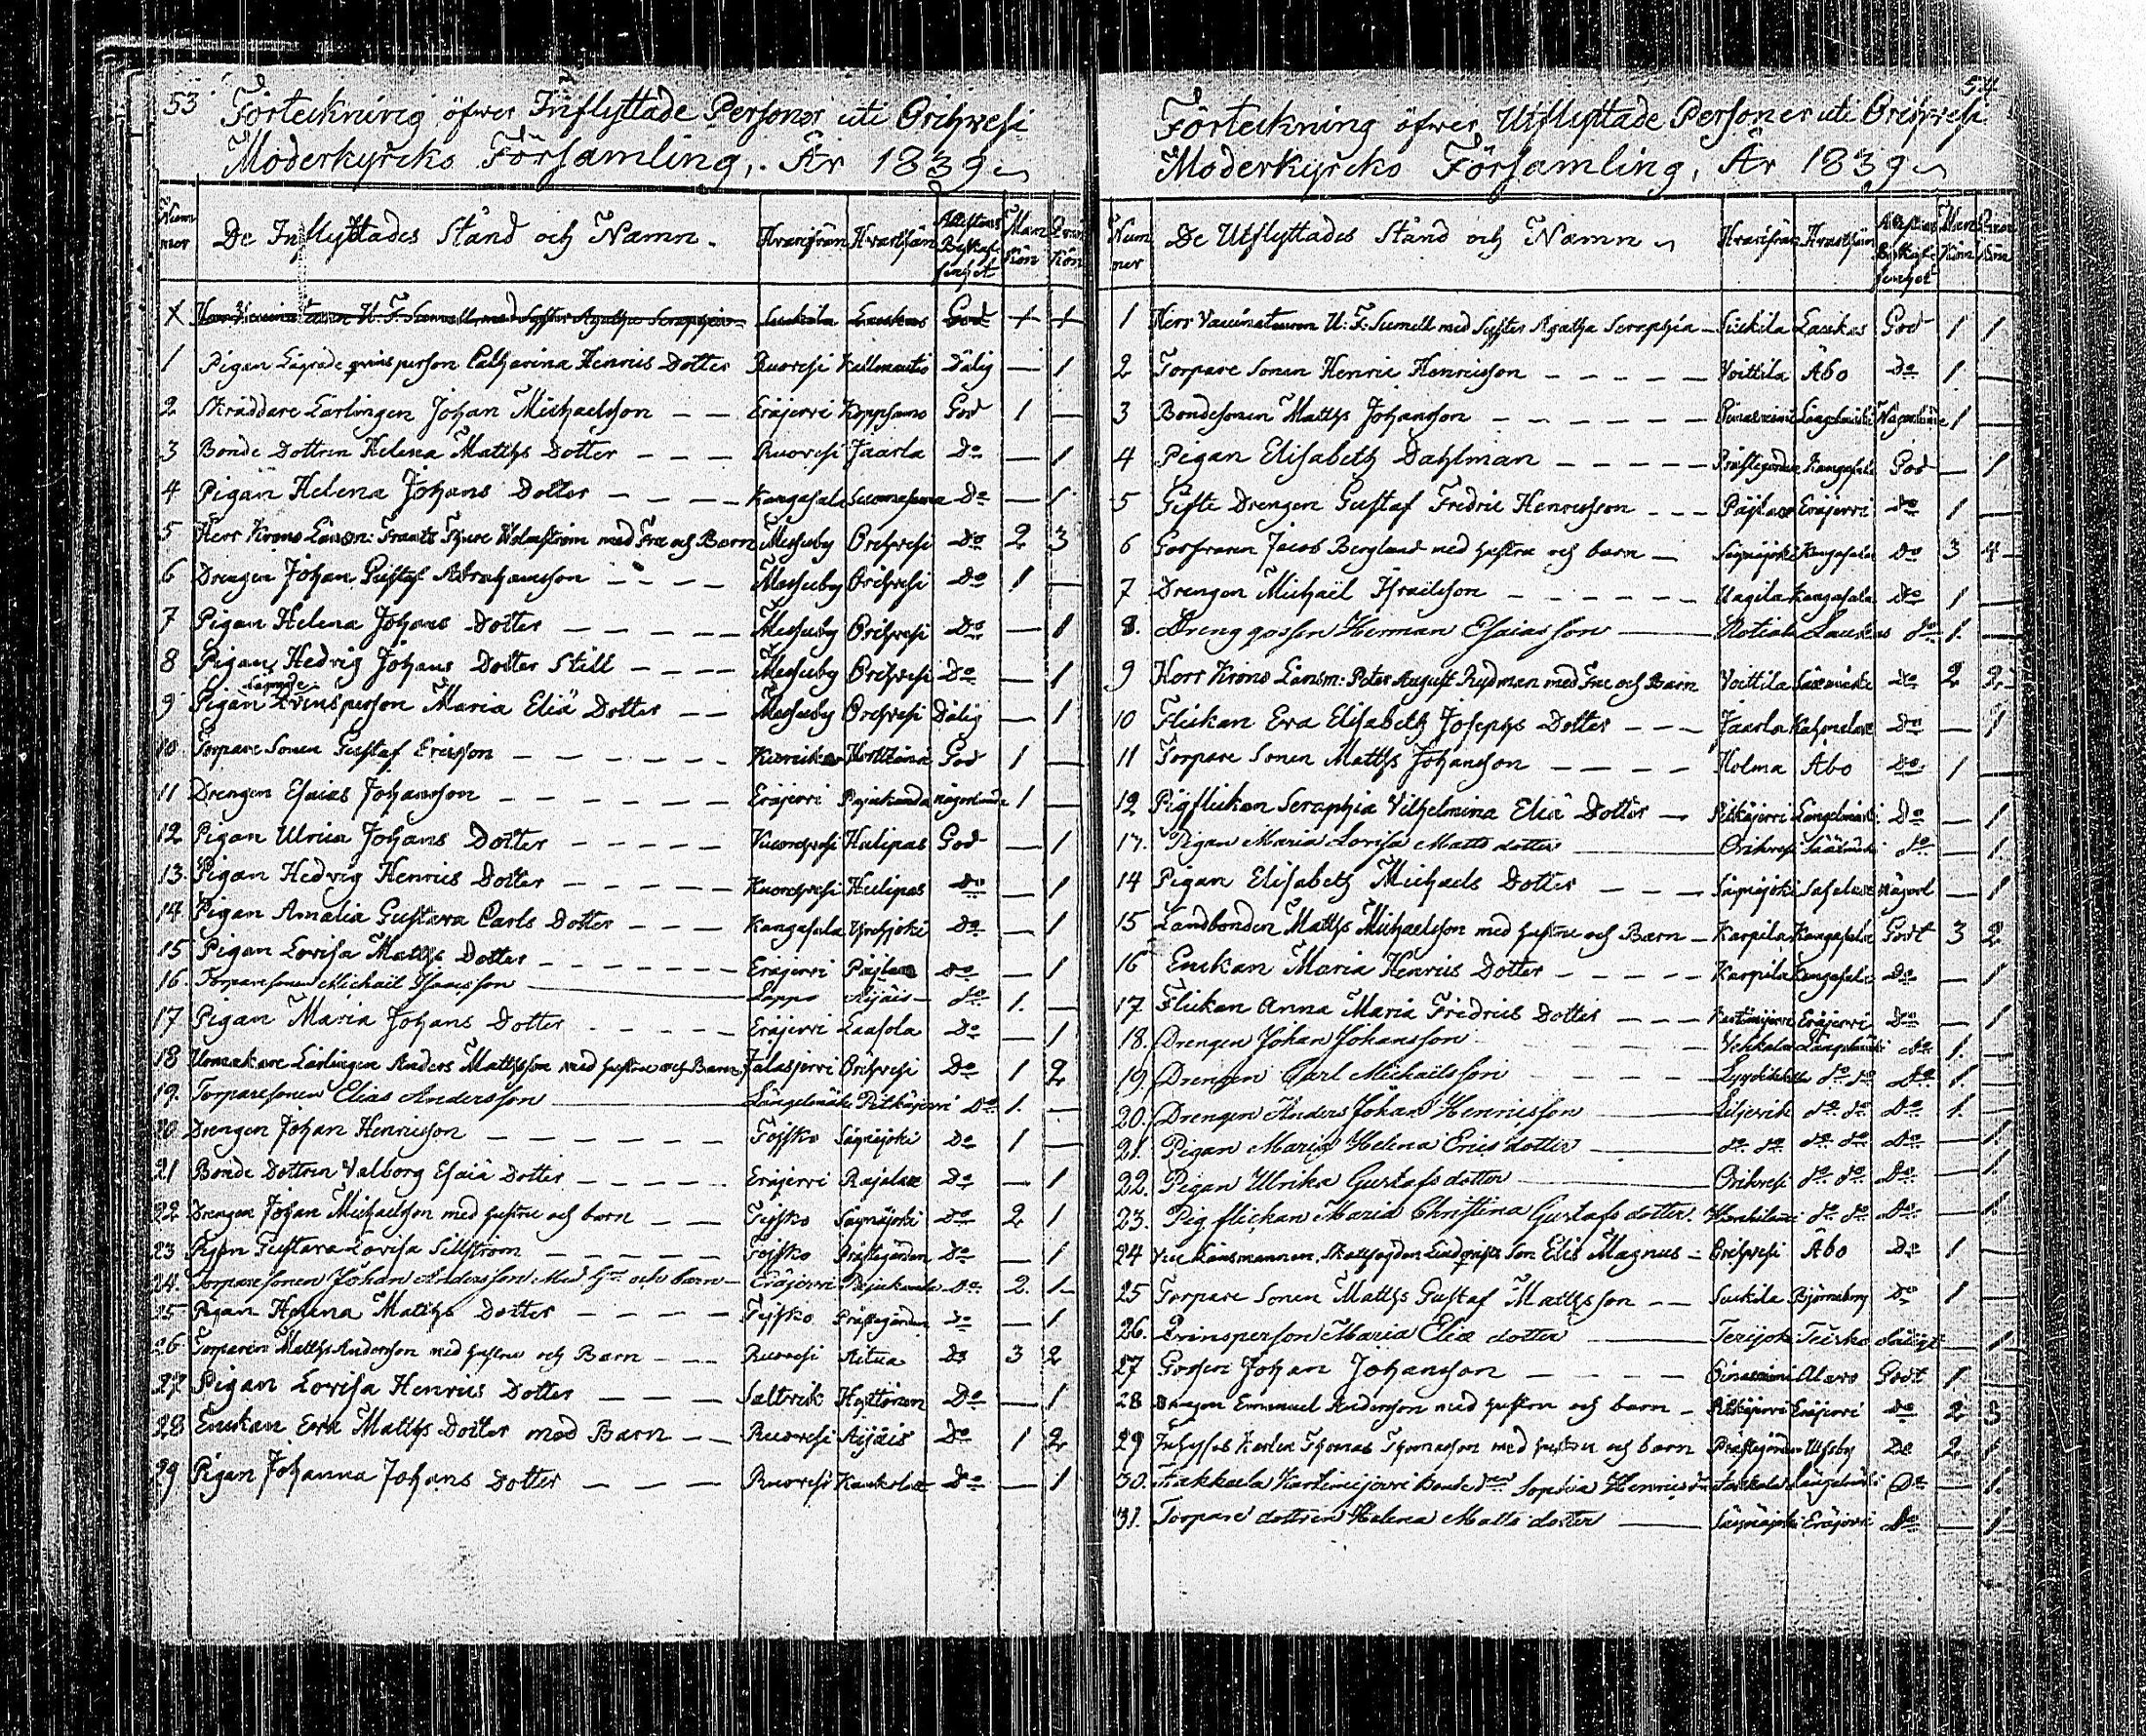 53
Förteckning öfwer Inflyttade Personer uti Orihvesi
Moderkyrcko Församling, År 1839
Num mer De Inflyttades Stånd och Namn. Hvarifrån Hvarthän Attestens Beskaffenhet Man Kön Qvin Kön
X Herr Vaccinateuren U. F. Sumell med Syster Agatha Seraphia Suckila Laukas God 1 1
1 Pigan Lägrade qvinsperson Catharina Henrics Dotter Ruovesi Dålig — 1
2 Skräddare Lärlingen Johan Michaelsson — — Eräjervi Koppsamo God 1 —
3 Bonde Dottren Helena Matths Dotter — — — Ruovesi Jaarla Do — 1
4 Pigan Helena Johans Dotter — — — — Kangasala Do — 1
5 Herr Krono Länsm: Frantz Thure Holmström med Fru och Barn Messuby Orihvesi Do 2 3
6 Drengen Johan Gustaf Abrahamsson — — — — Messuby Orihvesi Do 1 —
7 Pigan Helena Johans Dotter — — — — Messuby Orihvesi Do — 1
8 Pigan Hedvig Johans Dotter Still — — — Messuby Orihvesi Do — 1
Lägrade
9 Pigan Qvinsperson Maria Eliä Dotter — — Messuby Orihvesi Dålig — 1
10 Torpare Sonen Gustaf Ericsson — — — — — — God 1 —
11 Drengen Esaias Johansson — — — — — — Eräjervi Pajukanda någorlunda 1 —
12 Pigan Ulrica Johans Dotter — — — — — Kuorehvesi Hulipas God — 1
13. Pigan Hedvig Henrics Dotter — — — — — Kuorehvesi Hulipas Do — 1
14 Pigan Amalia Gustava Carls Dotter — — — Kangasala Do — 1
15 Pigan Lovisa Matths Dotter — — — — — — Eräjervi Päjlax Do — 1
16. Torparesonen Michail Isacsson Lappo Aijäis do 1. —
17 Pigan Maria Johans Dotter — — — — — Eräjervi Laasola Do — 1
18 Urmakare Lärlingen Anders Mathsson med hustru och Barn Jalasjervi Orihvesi Do 1 2
19. Torparesonen Elias Andersson Längelmäki Pitkäjervi Do 1. —
20 Drengen Johan Henricsson — — — — — — Teisko Säynäjoki Do 1 —
21 Bonde Dottren Valborg Esaiä Dotter — — — — — Eräjervi Rajalax Do — 1
22 Drengen Johan Michaelsson med hustru och barn — — Teisko Säynäjoki Do 2 1
23 Pigan Gustava Lovisa Sillström — — — — — Teisko Prästegården Do — 1
24. Torparesonen Johan Andersson Med Hu och barn — Eräjervi Pajukanda Do 2. 1
25 Pigan Helena Matths Dotter — — — — Teisko Prästegården Do — 1
26 Torparen Matths Andersson med hustru och Barn — — — Ruovesi Aitua Do 3 2
27 Pigan Lovisa Henrics Dotter — — — Saltvik Hyttönen Do — 1
28 Enckan Eva Matths Dotter med Barn — — Ruovesi Aijäis Do 1 2
29 Pigan Johanna Johans Dotter — — — Ruovesi Do — 1
54
Förteckning öfwer Utflyttade Personer uti Orihvesi
Moderkyrcko Församling, År 1839
Num mer De Utflyttades Stånd och Namn Hvarifrån Hvarthän Attestens Beskaffenhet Man Kön Qvin Kön
1 Herr Vaccinateuren U: F: Sumell med Syster Agatha Seraphia — Suckila Laukas God 1 1
2 Torpare Sonen Henric Henricsson — — — — — Voittila Åbo Do 1 —
3 Bondesonen Matths Johansson — — — — — — Längelmäki Någorlunda 1 —
4 Pigan Elisabeth Dahlman — — — — — Prästegården Kangasala God — 1
5 Gifte Drengen Gustaf Fredric Henricsson — — — Päjlax Eräjervi Do 1 —
6 Garfvaren Jacob Berglund med hustru och barn — Säynäjoki Kangasala Do 3 4
7 Drengen Michaël Israëlsson — — — — — — Uagila Kangasala Do 1 —
8. Dreng gossen Herman Esaiasson Laukas do 1. —
9 Herr Krono Länsm: Peter August Rydman med Fru och Barn Voittila Do 2 2
10 Flickan Eva Elisabeth Josephs Dotter — — — Jaarla Do — 1
11 Torpare Sonen Matths Johansson — — — — Holma Åbo Do 1 —
12 Pigflickan Seraphia Vilhelmina Eliä Dotter — Pitkäjervi Längelmäki Do — 1
13. Pigan Maria Lovisa Matts dotter Orihvesi do — 1.
14 Pigan Elisabeth Michaels Dotter — — — Säynäjoki någorl — 1
15 Landbonden Matths Michaelsson med hustru och Barn — Karpila Kangasala Godt 3 2
16 Enckan Maria Henrics Dotter — — — — — Karpila Kangasala Do — 1
17 Flickan Anna Maria Fredrics Dotter — — — Eräjervi Do — 1
18. Drengen Johan Johansson — — — — Vehkala Längelmäki do 1. —
19. Drengen Carl Michailsson — — — — do do do 1. —
20. Drengen Anders Johan Henricsson do do Do 1. —
21. Pigan Maria Helena Erics dotter do do do do Do — 1.
22. Pigan Ulrika Gustafs dotter Orihvesi do do Do — 1.
23. Pig flickan Maria Christina Gustafs dotter. do do Do — 1.
24 Vice Länsmannen, Skattfogden Lindqvists Son Elis Magnus — Orihvesi Åbo Do 1 —
25 Torpare Sonen Matths Gustaf Matthsson — — Suckila Björneborg Do 1 —
26. Qvinsperson Maria Eliæ dotter Teisko dåligt — 1
27 Gossen Johan Johansson — — — — — Alavo Godt 1 —
28 Drengen Emanuel Andersson med hustru och barn — Pitkäjervi Eräjervi Do 2 3
29 Inhyses Karlen Thomas Thomasson med hustru och barn Prästegården Ulfsby Do 2 1
30. Sophia Henrics Längelmäki Do — 1.
31. Torpare dottren Helena Matts dotter Säynäjoki Eräjervi Do — 1.